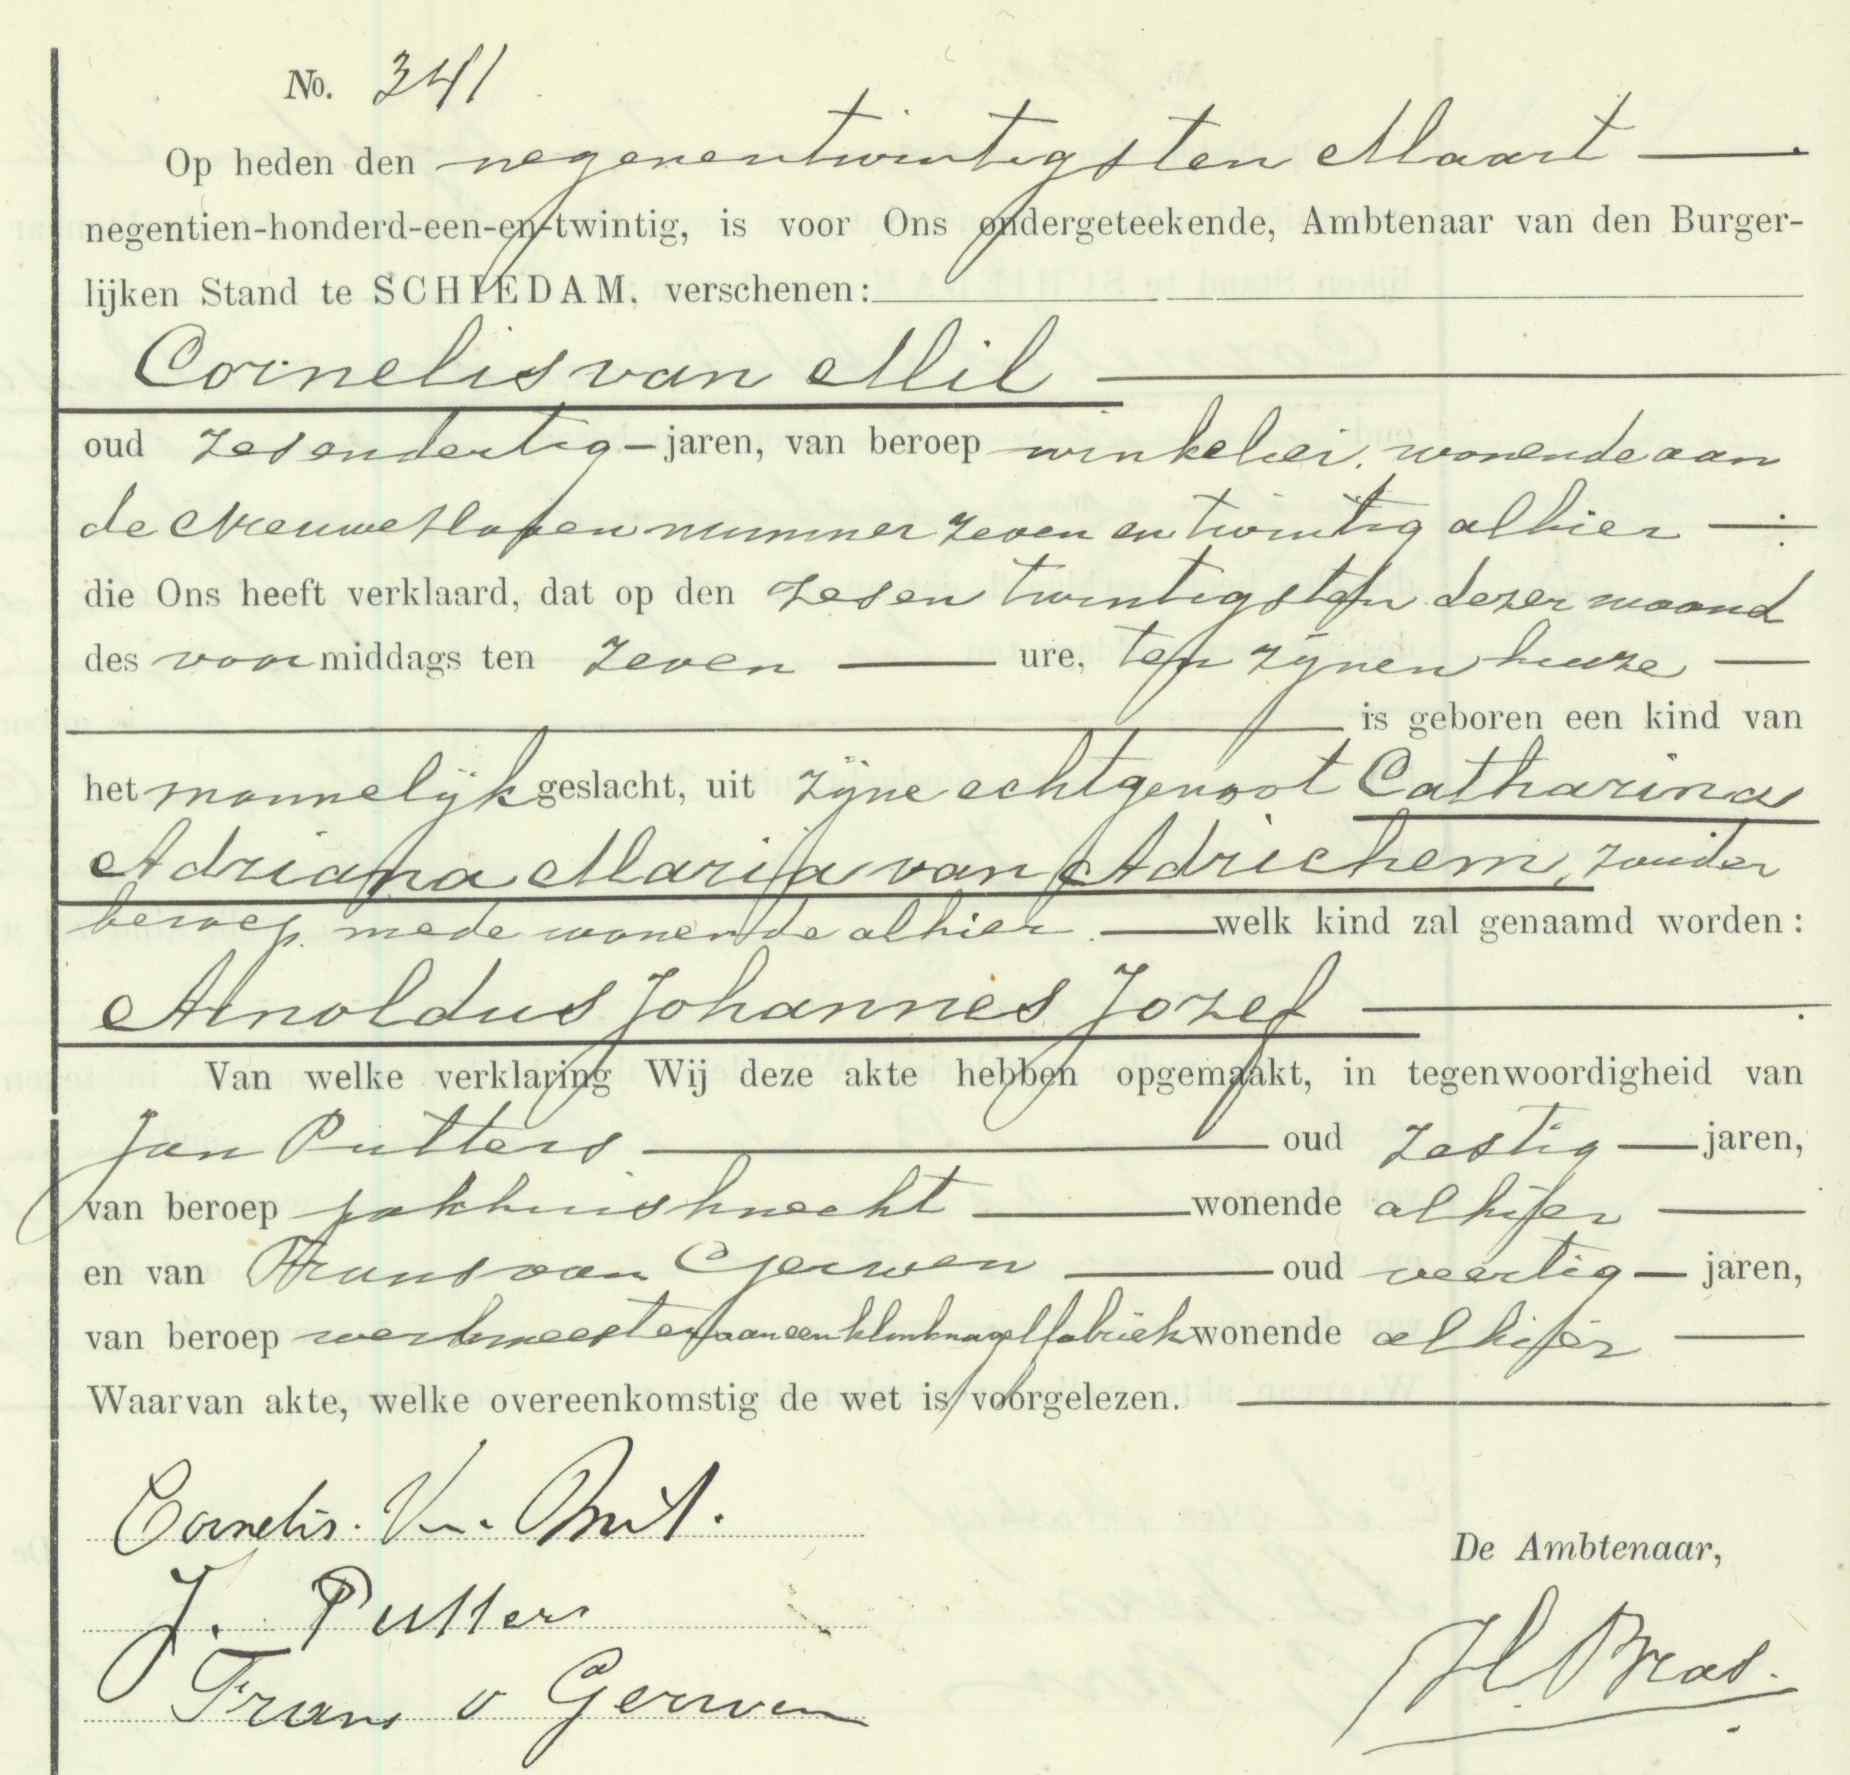 No. 341
Op heden den negenentwintigsten Maart
negentien-honderd-een-en-twintig, is voor Ons ondergeteekende, Ambtenaar van den Burger-
lijken Stand te SCHIEDAM, verschenen:
Cornelis van Mil
oud zesendertig jaren, van beroep winkelier, wonende aan
de Nieuwesloven nummer zeven en twintig alhier
die Ons heeft verklaard, dat op den zesen twintigsten dezer maand
des voormiddags ten zeven ure, ten zijnen huize
is geboren een kind van
het mannelijk geslacht, uit zijne echtgenoot Catharina
Adriana Maria van Adrichem, zonder
beroep, mede wonende alhier welk kind zal genaamd worden:
Arnoldus Johannes Jozef
Van welke verklaring Wij deze akte hebben opgemaakt, in tegenwoordigheid van
Jan Putters oud zestig jaren,
van beroep pakhuisknecht wonende alhier
en van Frans van Gerwen oud veertig jaren,
van beroep werkmeester aan een klinknagelfabriek wonende alhier
Waarvan akte, welke overeenkomstig de wet is voorgelezen.
Cornelis. Van Mil.
De Ambtenaar,
J. Putters
Frans v Gerwen